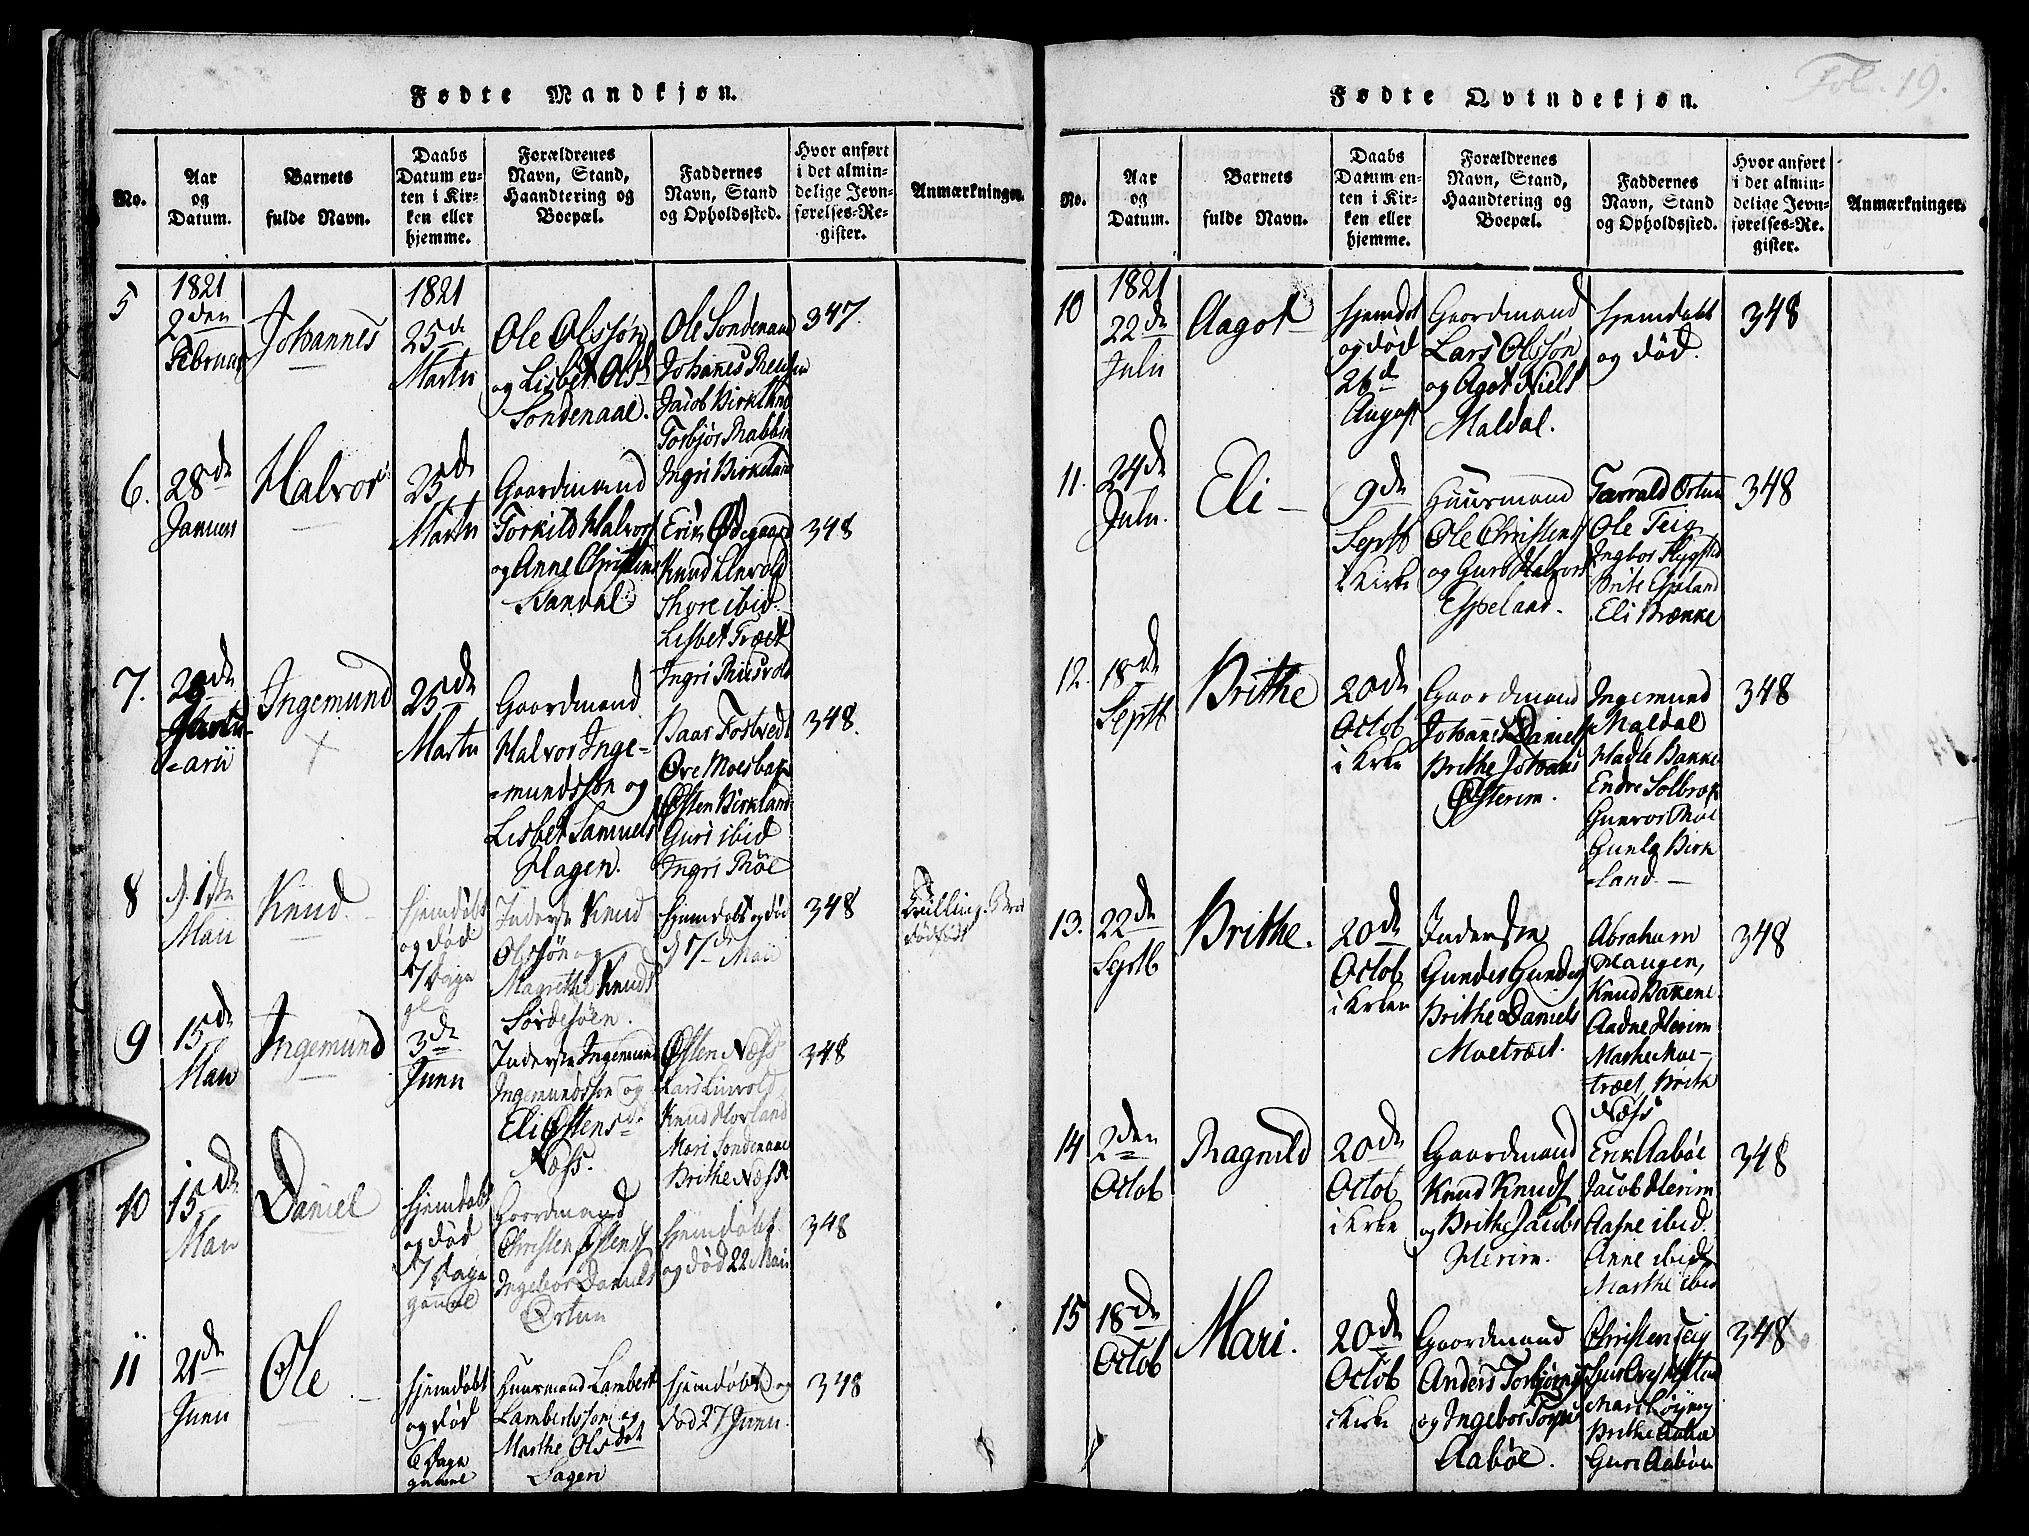 Fødte Mandkjøn.
No.
Aar
og
Datum.
Barnets
fulde Navn.
Daabs
Datum en-
ten i Kir-
ken eller
hjemme.
Forældrenes
Navn, Stand,
Haandtering og
Boepæl.
Faddernes
Navn, Stand
og Opholdssted.
Hvor anført
i det almin-
delige Jevn-
førelses-Re-
gister.
Anmærkninger.
5
1821
2den
Februar
Johannes
1821
25de
Martii
Ole Olssøn
og Lisbet Olsd
Søndenaae.
Ole Søndenaae
Johannes
Jacob Birkland
Torbjør
Ingri Birkeland
347
6.
28de
Januari
Halvor
25de
Martii
Gaardmand
Torkild Halvors
og Anne Christens
Sandal
Erik Ødegaard
Knud Linvold
Thore ibid.
Lisbet Træet
Ingri
348
7.
29de
-arii
Ingemund
25de
Martii
Gaardmand
Halvor Inge-
-mundssøn og
Lisbet Samuels
Hagen.
Østen Birkland
Guri ibid
Ingri
348.
8
d. 1de
Maii
Knud.
hjemdøbt
og død
7 Dage
gl
Inderste Knud
Olssøn og
Magrethe Knuds
hjemdøbt og død
d 7de Maii
348
Tvilling
dødfødt
9
15de
Maii
Ingemund
3de
Junii
Inderste Ingemund
Ingemundssøn og
Eli Østensd.
Næss.
Østen Næss
Lars Linvold
Knud Hovland
Mari Søndenaae
Brithe Næss
348
10
15de
Maii
Daniel
hjemdøbt
og død
7 Dage
gammel
Gaardmand
Christen Østens
Ingebor Daniels
Ørtun
hjemdøbt
og død 22 Maii
348
11
21de
Junii
Ole
hjemdøbt
og død
6 Dage
gammel
Huusmand Lambert
Lambertssøn og
Marthe Olsdat
Sagen
hjemdøbt og
død 27 Junii.
348
Fol. 19.
Fødte Qvindekjøn.
No.
Aar
og
Datum.
Barnets
fulde Navn.
Daabs
Datum en-
ten i Kir-
ken eller
hjemme.
Forældrenes
Navn, Stand,
Haandtering og
Boepæl.
Faddernes
Navn, Stand
og Opholdssted.
Hvor anført
i det almin-
delige Jevn-
førelses-Re-
gister.
Anmærkninger.
10
1821
22de
Julii
Aagot
hjemdøbt
og død
26de
August
Gaardmand
Lars Olssøn
og Agot Niels
Maldal.
hjemdøbt
og død.
348
11.
24de
Julii
Eli
9de
Septb
i Kirke
Huusmand
Ole Christens
og Guro Halvors
Espeland.
Tarrald Ørtun
Ole Teig
Ingbor
Brite Espeland
Eli Brække
348
12.
18de
Septb
Brithe
20de
Octob
i Kirke
Gaardmand
Johannes Daniels
Brithe Johans
Østerim.
Ingemund
Maldal
Hadle Bakke
Endre
Gunvor
Gunla Birk
-land.
348
13.
22de
Septb
Brithe.
20de
Octob
i Kirke
Inderste
Gundes Gundes
Brithe Daniels
Moetræet.
Abraham
Haugen,
Knud Bakkene
Aadne Herim
Marthe Moe-
træet, Brith
Næss
348
14
2den
Octob
Ragnild
20de
Octob
i Kirke
Gaardmand
Knud Knuds
og Brithe Jacobs
Herim.
Erik Aabøe
Jacob Herim
Aasne ibid.
Anne ibid
Marthe ibid
348
15
18de
Octob
Mari.
20de
Octob
i Kirke
Gaardmand
Anders Torbjørns
og Ingebor
Aabøe.
Christen Teig
Brithe Aabøe
Guri Aabøe
348